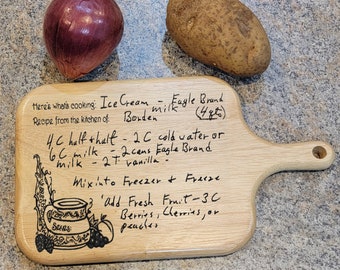 Here's what's cooking: Ice Cream - Eagle Brand
milk (4 qt)
Recipe from the kitchen of: Borden
4 C half + half - 2 C cold water or
6 C milk - 2 cans Eagle Brand
milk - 2 T vanilla -
Mix into Freezer + Freeze
Add Fresh Fruit - 3 C
Berries, Cherries, or
peaches